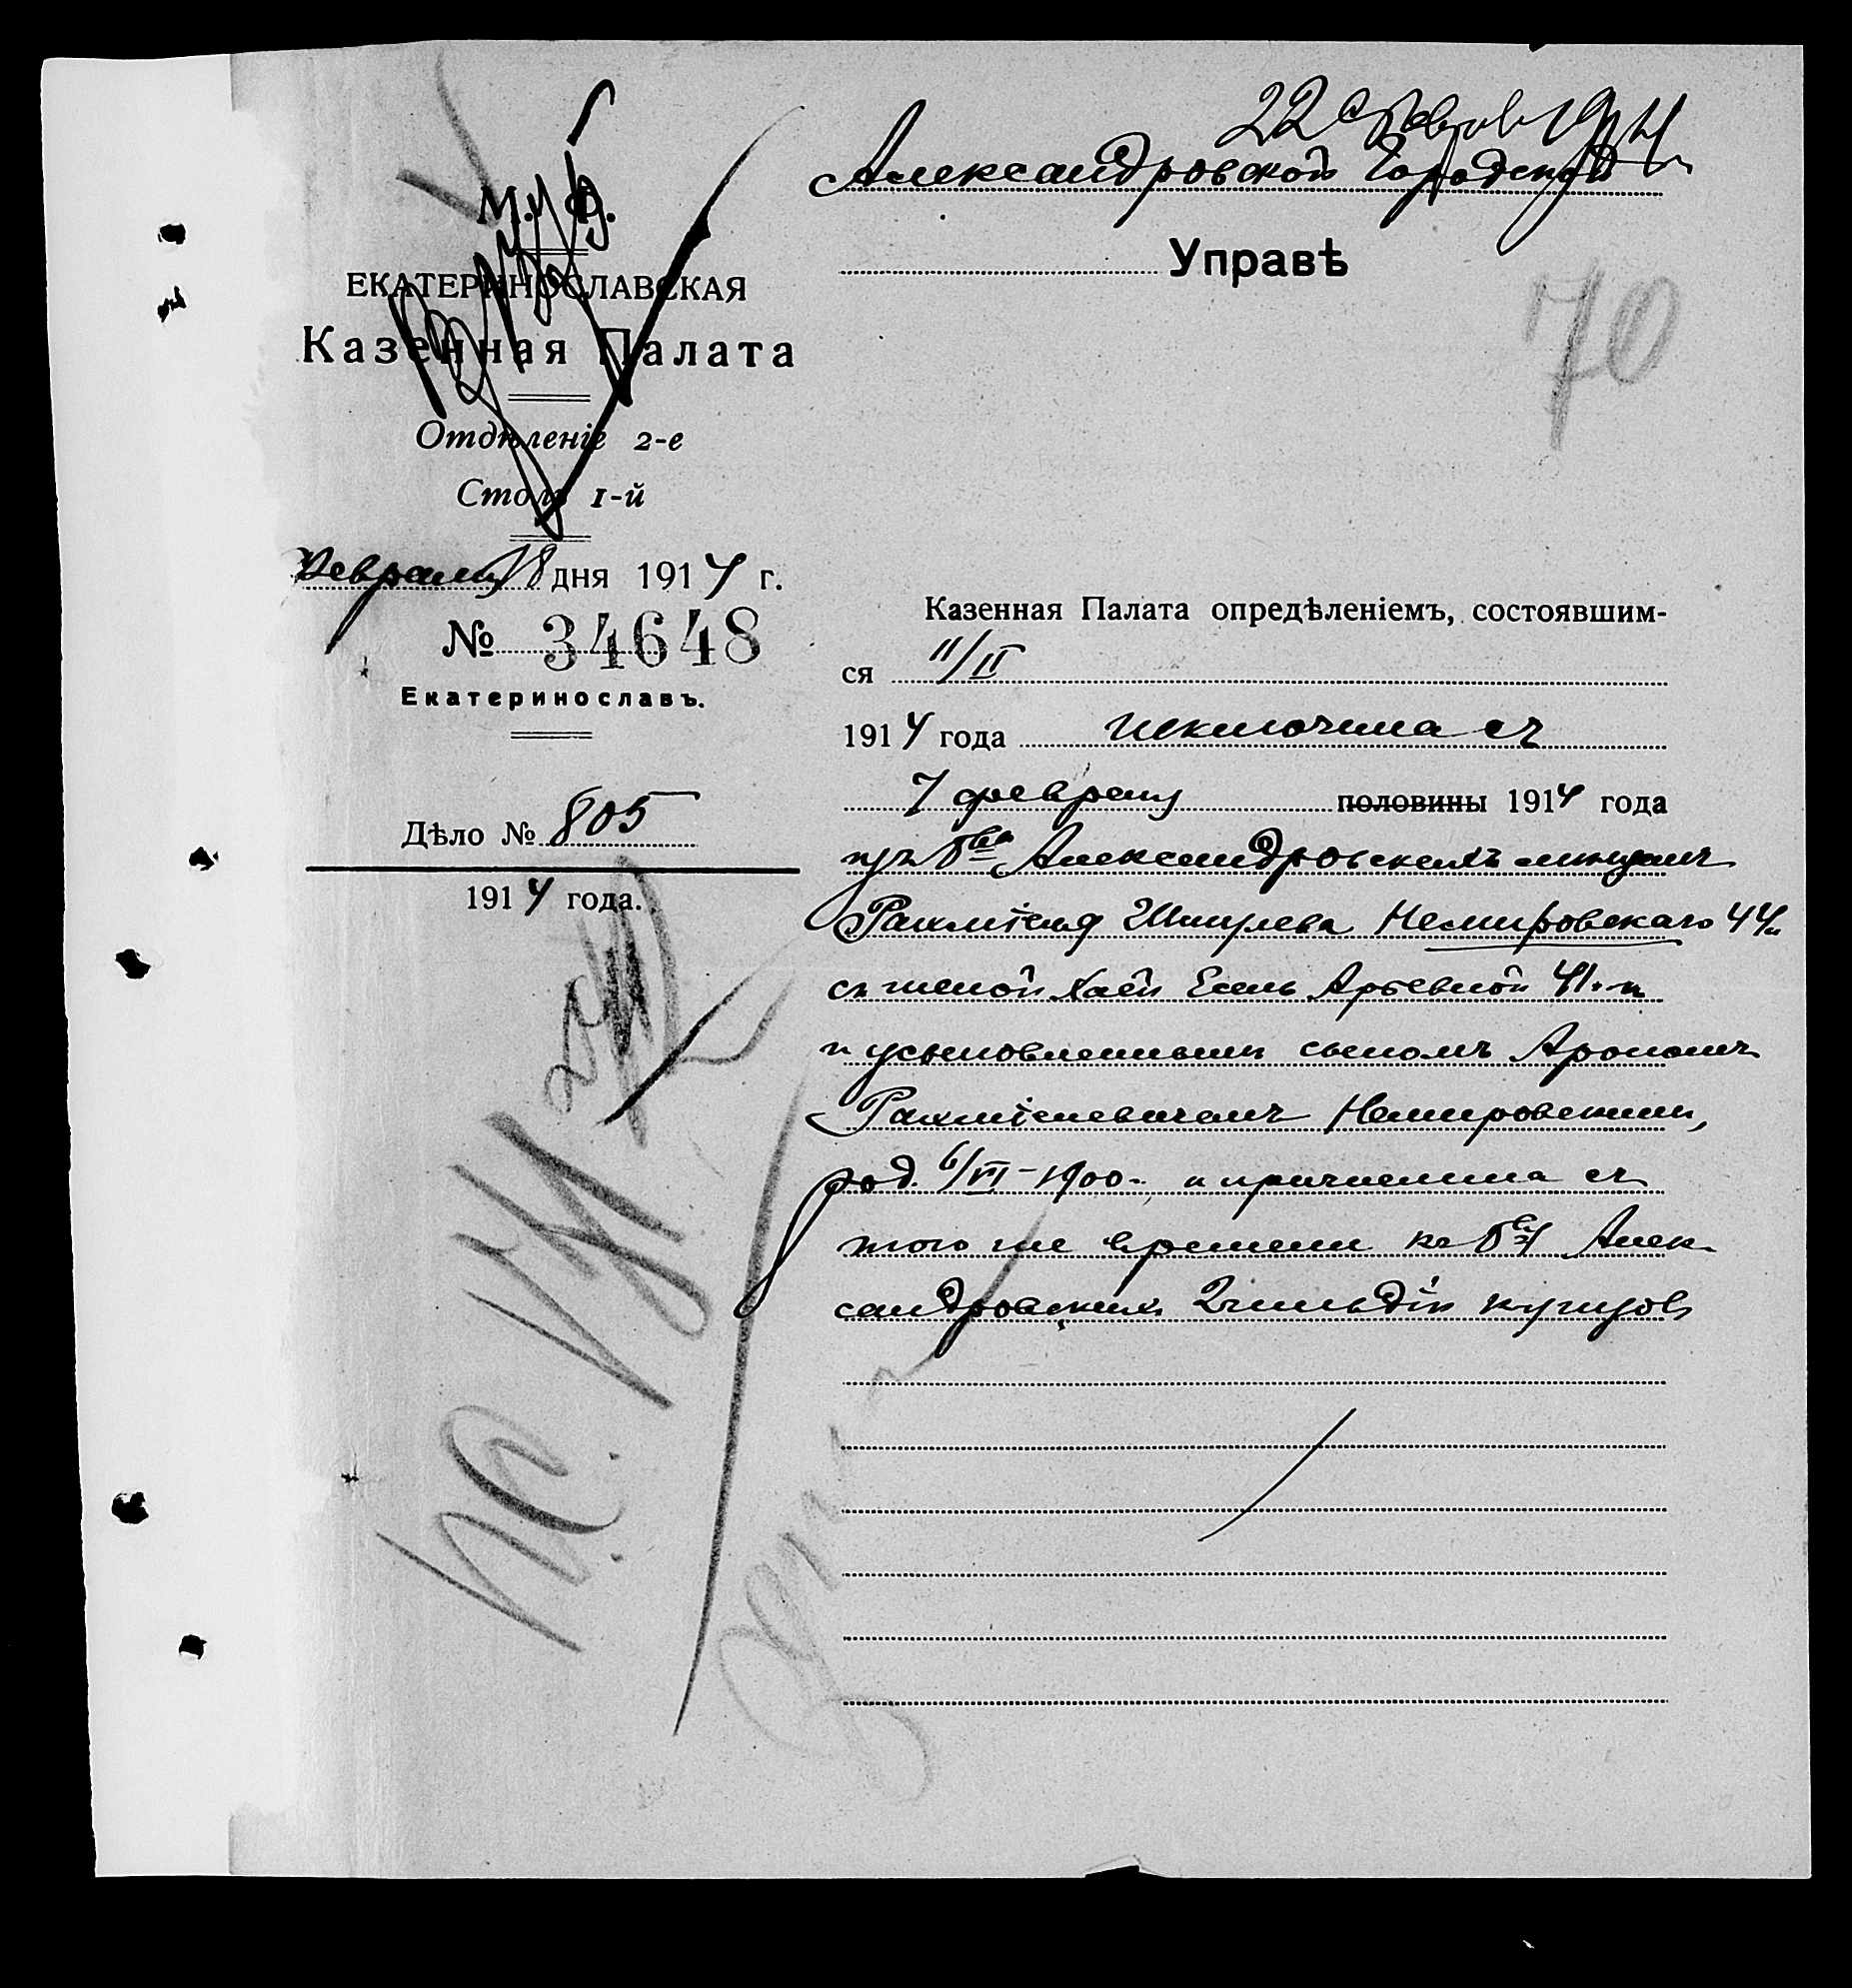 22 Февраля 1914
Александровской Городской
Управѣ
70
М. Ф.
ЕКАТЕРИНОСЛАВСКАЯ
Казенная Палата
Отдѣленіе 2-е
Столъ 1-й
Февраля 18 дня 1914 г.
№ 34648
Екатеринославъ.
Дѣло № 805
1914 года.
Казенная Палата опредѣленіемъ, состоявшим-
ся 11/II
1914 года исключила съ
7 февраля половины 1914 года
изъ о-ва Александровскихъ мѣщанъ
Рахміеля Шмулева Немировскаго 44 л.
съ женой Хаей Арьевной 41 л.
и усыновленнымъ сыномъ Арономъ
Рахміелевичемъ Немировскимъ,
род. 6/VI-1900 и причислила съ
того же времени къ о-ву Алек-
сандровскихъ 2 гильдіи купцовъ